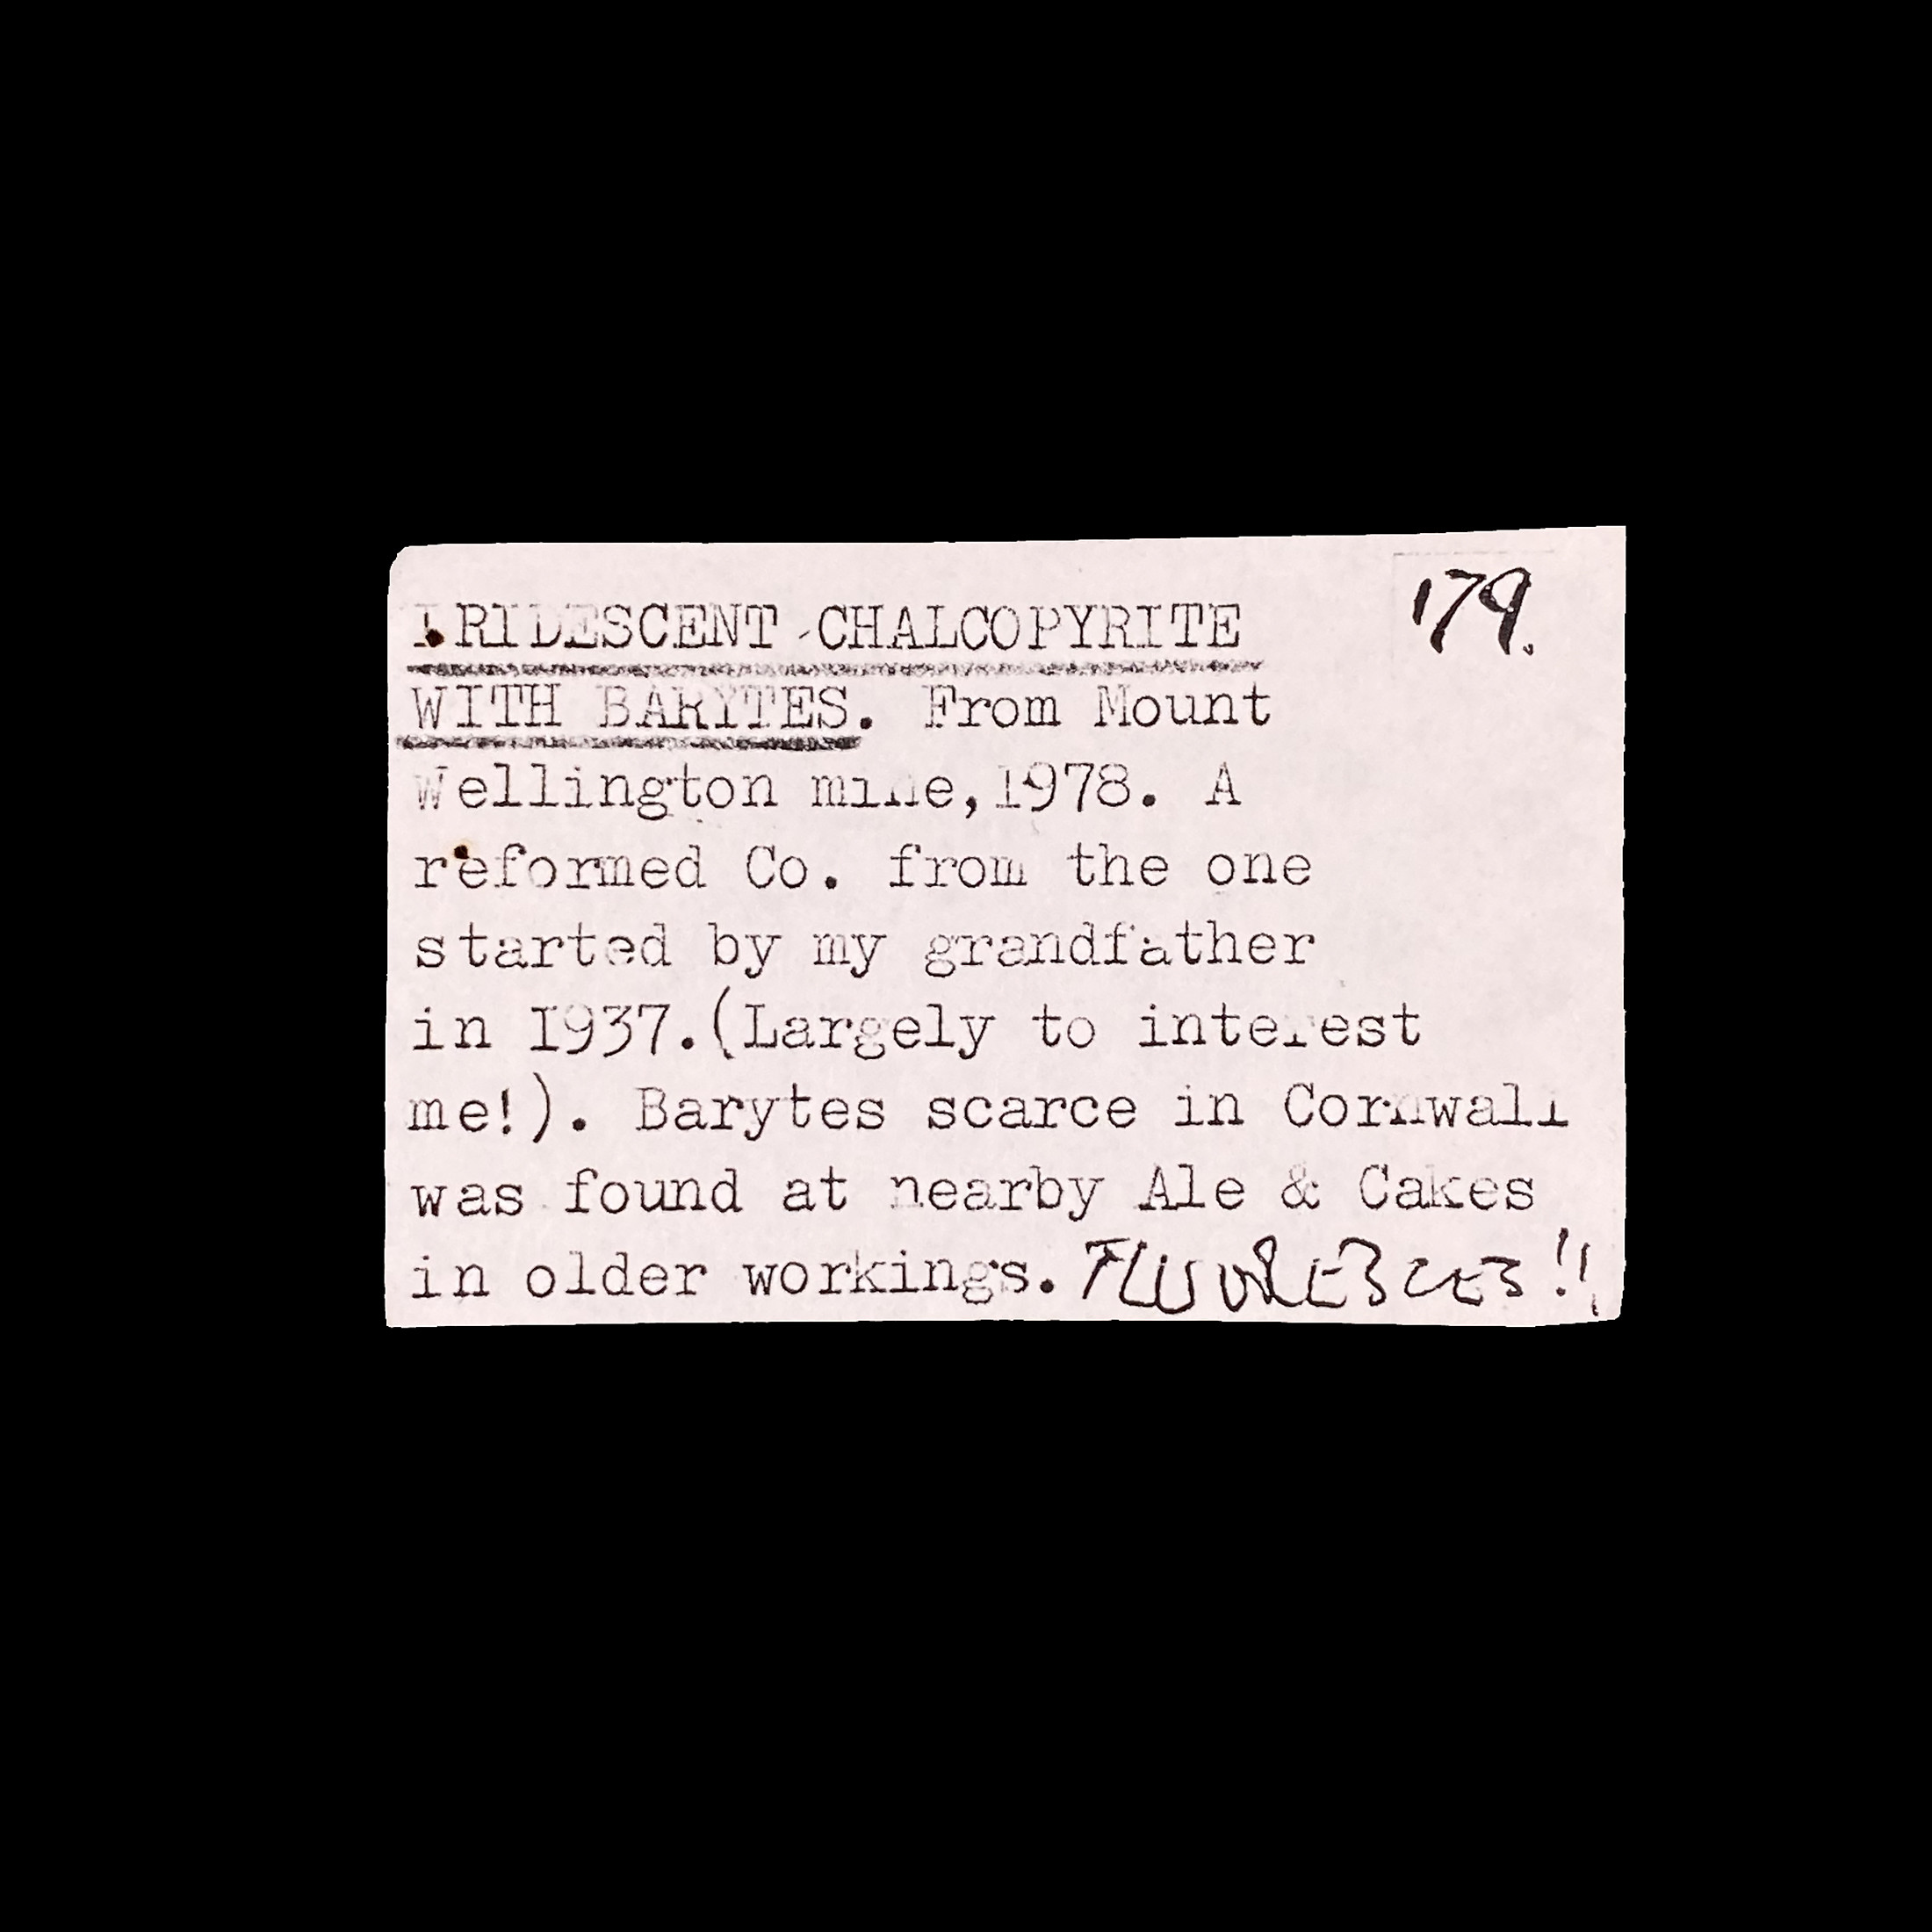 IRIDESCENT CHALCOPYRITE 179.
WITH BARYTES. From Mount
Wellington mine,1978. A
reformed Co. from the one
started by my grandfather
in I937.(Largely to interest
me!). Barytes scarce in Cornwall
was found at nearby Ale & Cakes
in older workings. FLUORESCES!!